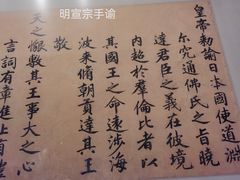 明宣宗手谕
皇帝勅諭日本國使道淵
尔究通佛氏之旨曉
達君臣之義在彼境
内超於羣倫比者以
其國王之命遠涉海
波來脩朝貢達其王
敬
天之懷敷其王事大之心
言詞有章進止有